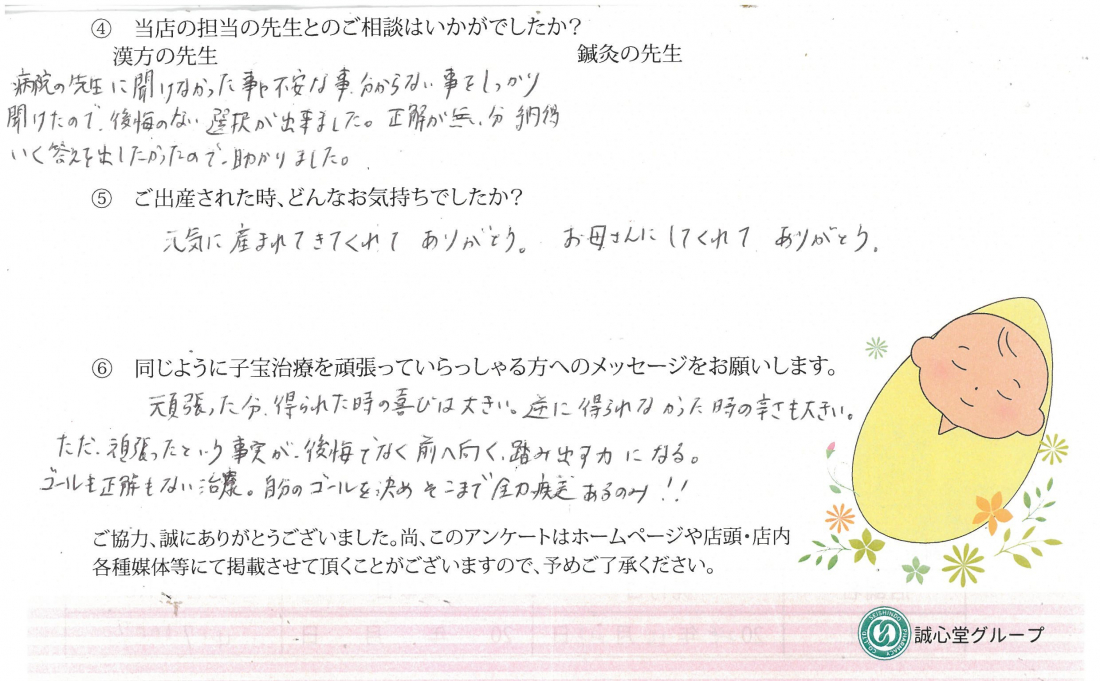 ④ 当店の担当の先生とのご相談はいかがでしたか？
漢方の先生 鍼灸の先生
病院の先生に聞けなかった事や不安な事、分からない事をしっかり
聞けたので、後悔のない選択が出来ました。正解が無い分 納得
いく答えを出したかったので、助かりました。
⑤ ご出産された時、どんなお気持ちでしたか？
元気に産まれてきてくれて ありがとう。 お母さんにしてくれて ありがとう。
⑥ 同じように子宝治療を頑張っていらっしゃる方へのメッセージをお願いします。
頑張った分、得られた時の喜びは大きい。逆に得られなかった時の辛さも大きい。
ただ、頑張ったという事実が、後悔でなく前へ向く、踏み出す力になる。
ゴールも正解もない治療。自分のゴールを決め そこまで全力疾走あるのみ！！
ご協力、誠にありがとうございました。尚、このアンケートはホームページや店頭・店内
各種媒体等にて掲載させて頂くことがございますので、予めご了承ください。
SEISHINDO PHARMACY CO.,LTD
誠心堂グループ